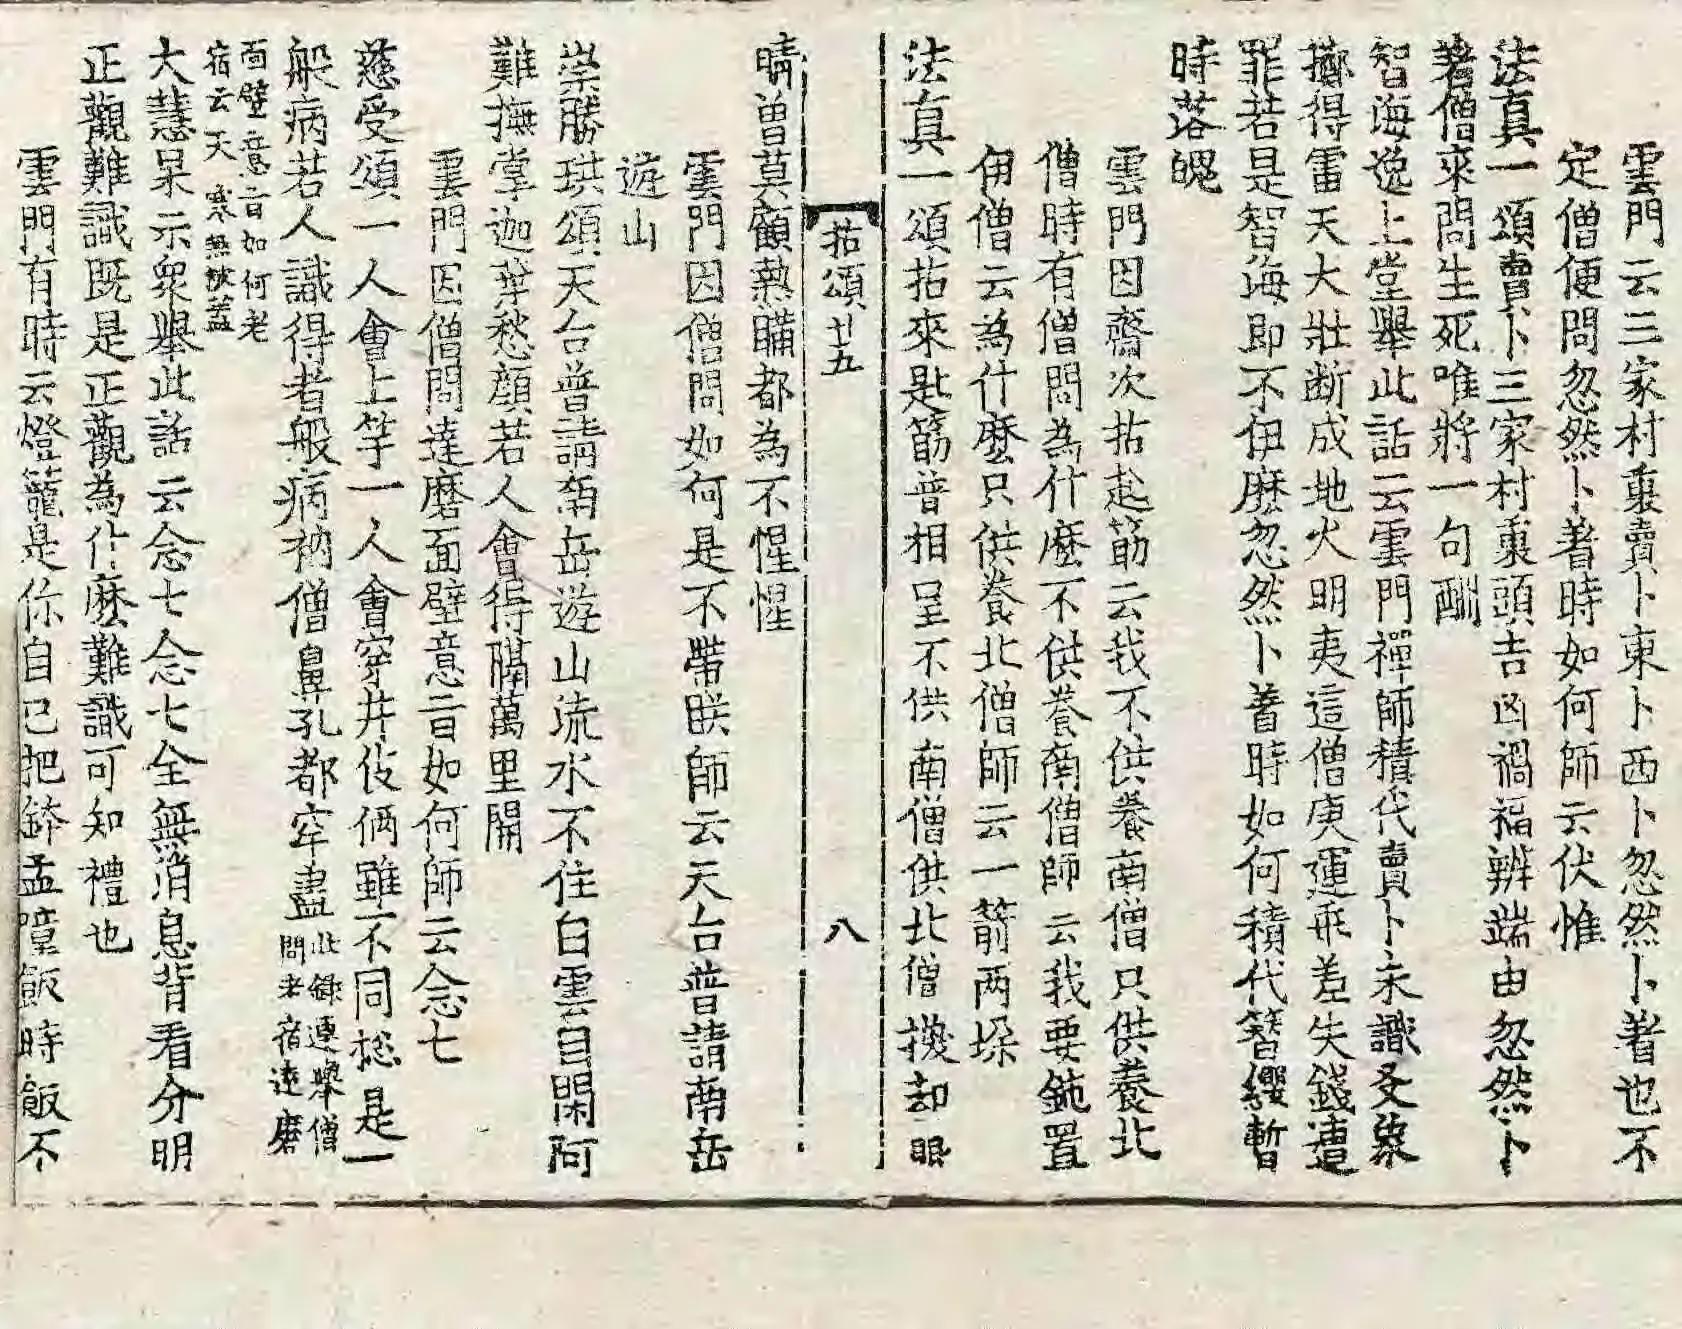 雲門云三家村裏賣卜東卜西卜忽然卜著也不
定僧便問忽然卜著時如何師云伏惟
法真一頌賣卜三家村裏頭吉凶禍福辨端由忽然卜
著僧來問生死唯將一句酬
智海逸上堂舉此話云雲門禪師積代賣卜未識爻象
擲得雷天大壯断成地火明夷這僧庚運乖差失錢遭
罪若是智海即不伊麽忽然卜著時如何積代簪纓暫
時落魄
雲門因齋次拈起筯云我不供養南僧只供養北
僧時有僧問為什麽不供養南僧師云我要鈍置
伊僧云為什麽只供養北僧師云一箭两垛
法真一頌拈來匙筯普相呈不供南僧供北僧撥却眼
拈頌廿五 八
睛曽莫顧熱瞞都為不惺惺
雲門因僧問如何是不帶眹師云天台普請南岳
遊山
崇勝珙頌天台普請南岳遊山流水不住白雲自閑阿
難撫掌迦葉愁顔若人會得隔萬里開
雲門因僧問達磨面壁意旨如何師云念七
慈受頌一人會上竿一人會穿井伎倆雖不同捴是一
般病若人識得者般病衲僧鼻孔都穿盡此録連舉僧問老宿達磨
面壁意旨如何老宿云天寒無被盖
大慧杲示衆舉此話云念七念七全無消息背看分明
正觀難識既是正觀為什麽難識可知禮也
雲門有時云燈籠是你自己把鉢盂噇飯時飯不